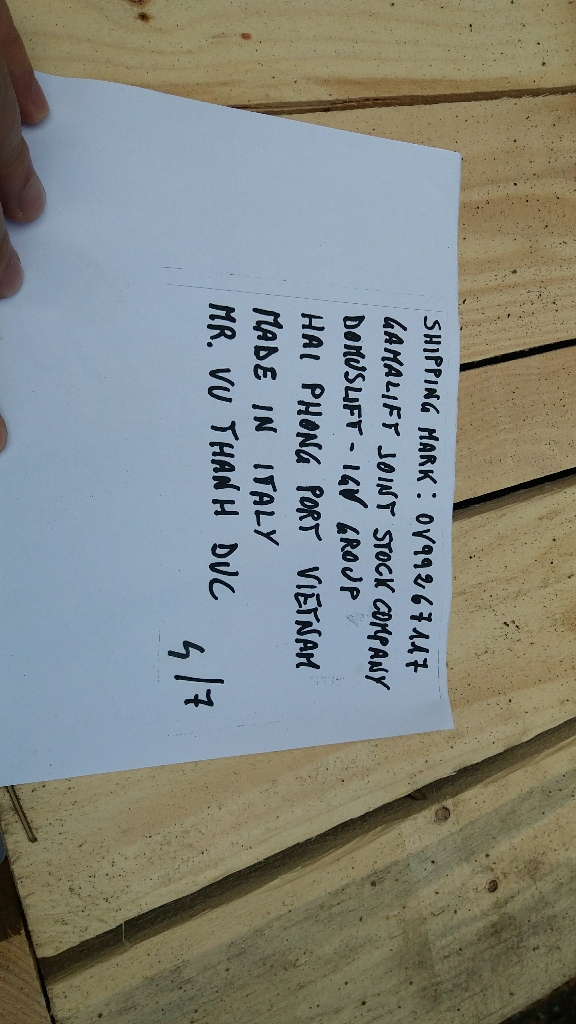 SHIPPING MARK: OV99267117
GAMALIFT JOINT STOCK COMPANY
DOMUSLIFT - IGV GROUP
HAI PHONG PORT VIETNAM
MADE IN ITALY
MR. VU THANH DUC
5/7